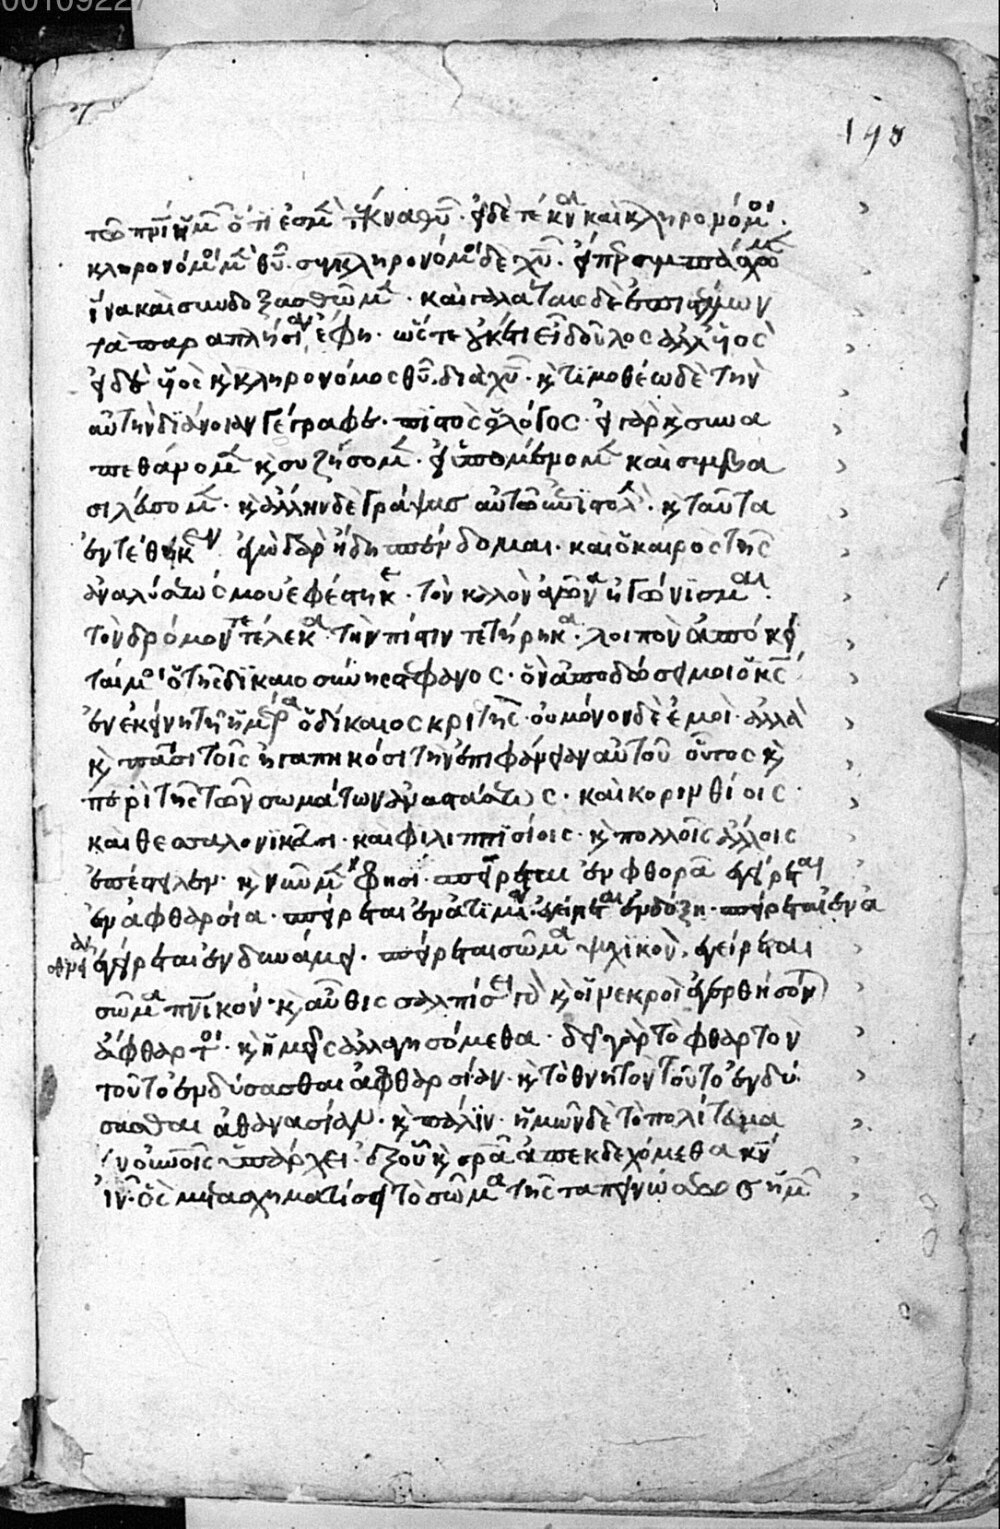 00109227
198
τῶ πνι ἡμῶν ὅτι ἐσμὲν τέκνα θυ. εἰ δὲ τέκνα καὶ κληρονόμοι.
κληρονόμοι μὲν θυ. συγκληρονόμοι δὲ χυ. εἴπερ συμπάσχομεν
ἵνα καὶ συνδοξασθῶμεν. καὶ γαλάταις δὲ
τὰ παραπλήσια ἔφη. ὥστε οὐκέτι εἶ δοῦλος ἀλλ' υἱὸς
εἰ δὲ υἱὸς κ κληρονόμος θυ διὰ χυ. κ τιμοθέω δὲ τὴν
αὐτὴν διάνοιαν γέγραφε. πιστὸς ὁ λόγος. εἰ γὰρ κ συνα
πεθάνομεν κ συζήσομεν. εἰ ὑπομένομεν καὶ συμβα
σιλεύσομεν. κ ἄλλην δὲ γράψας αὐτῶ ἐπιστολὴν. κ ταῦτα
ἐντέθηκεν ἐγὼ γὰρ ἤδη σπένδομαι. καὶ ὁ καιρὸς τῆς
ἀναλύσεώς μου ἐφέστηκε. τὸν καλὸν ἀγῶνα ἠγώνισμαι.
τὸν δρόμον τετέλεκα. τὴν πίστιν τετήρηκα. λοιπὸν ἀπόκει
ταί μοι ὁ τῆς δικαιοσύνης στέφανος. ὃν ἀποδώσει μοι ὁ κς
ἐν ἐκείνη τῆ ἡμέρα ὁ δίκαιος κριτής. οὐ μόνον δὲ ἐμοὶ. ἀλλὰ
κ πᾶσι τοῖς ἠγαπηκόσι τὴν ἐπιφάνειαν αὐτοῦ οὗτος κ
περὶ τῆς τῶν σωμάτων ἀναστάσεως. καὶ κορινθίοις.
καὶ θεσσαλονικεῦσι. καὶ φιλιππησίοις. κ πολλοῖς ἄλλοις
ἐπέστειλεν. κ νῦν μὲν φησί. σπείρεται ἐν φθορᾶ ἐγείρεται
ἐν ἀφθαρσία. σπείρεται ἐν ἀτιμία. ἐγείρεται ἐν δόξη. σπείρεται ἐν ἀ
σθενεία ἐγείρεται ἐν δυνάμει. σπείρεται σῶμα ψυχικὸν. ἐγείρεται
σῶμα πνικόν. κ αὖθις σαλπίσει γὰρ κ οἱ νεκροὶ ἐγερθήσονται
ἄφθαρτοι. κ ἡμεῖς ἀλλαγησόμεθα. δεῖ γὰρ τὸ φθαρτὸν
τοῦτο ἐνδύσασθαι ἀφθαρσίαν. κ τὸ θνητὸν τοῦτο ἐνδύ
σασθαι ἀθανασίαν. κ πάλιν. ἡμῶν δὲ τὸ πολίτευμα
ἐν οὐνοῖς ὑπάρχει. ἐξ οὗ κ σρα ἀπεκδεχόμεθα κν
ιν. ὃς μετασχηματίσει τὸ σῶμα τῆς ταπεινώσεως ἡμῶν